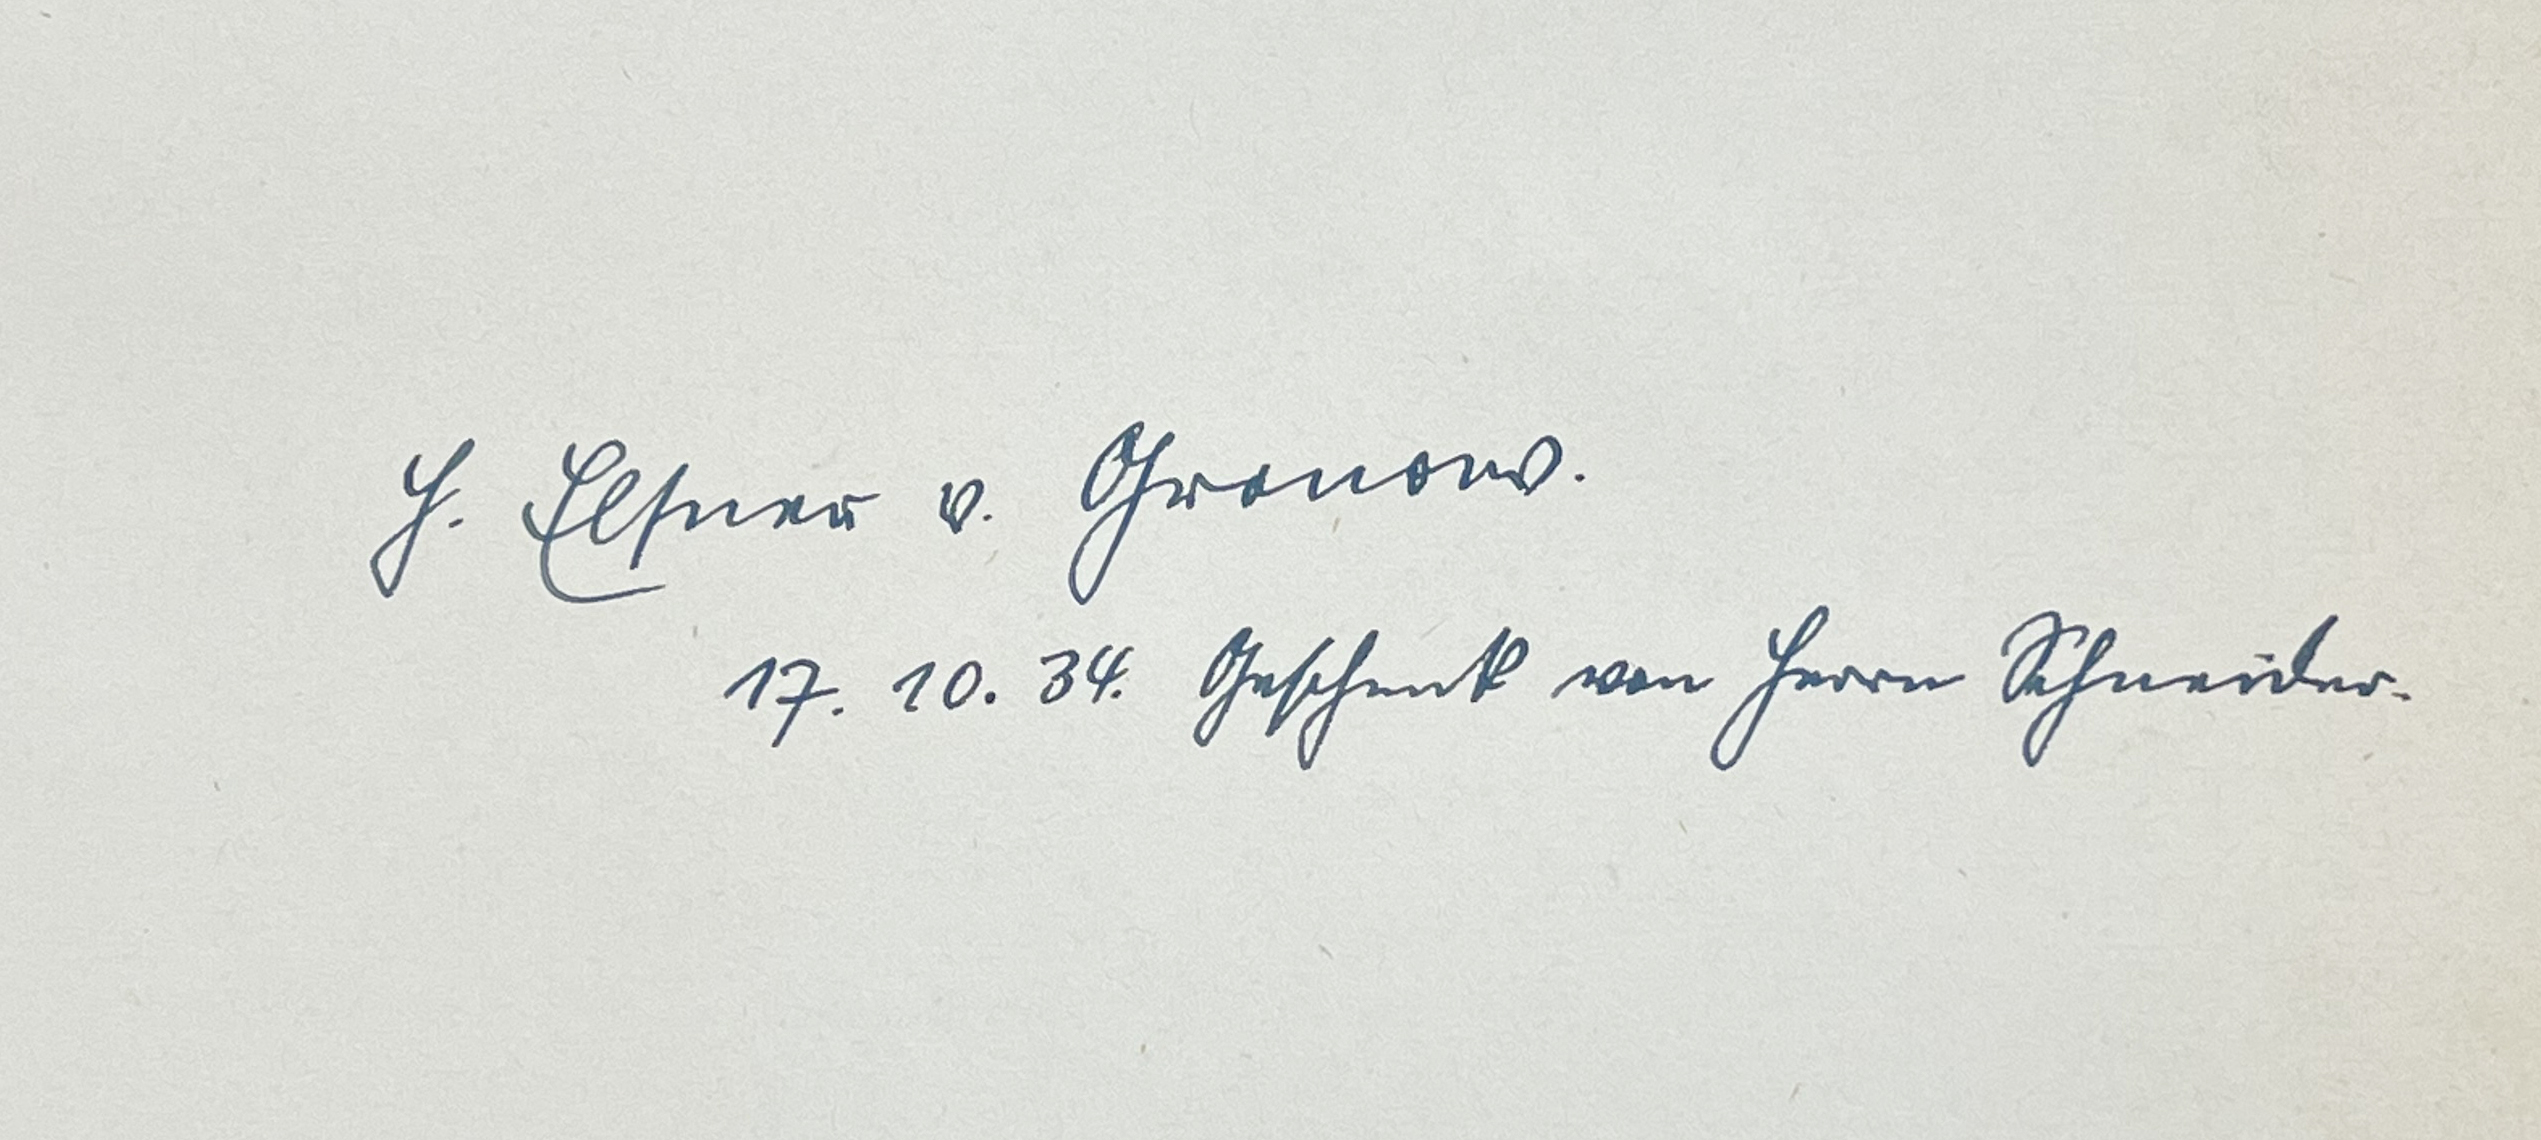 H. Elsner v. Gronow.
17. 10. 34. Geschenk von Herrn Schneider.